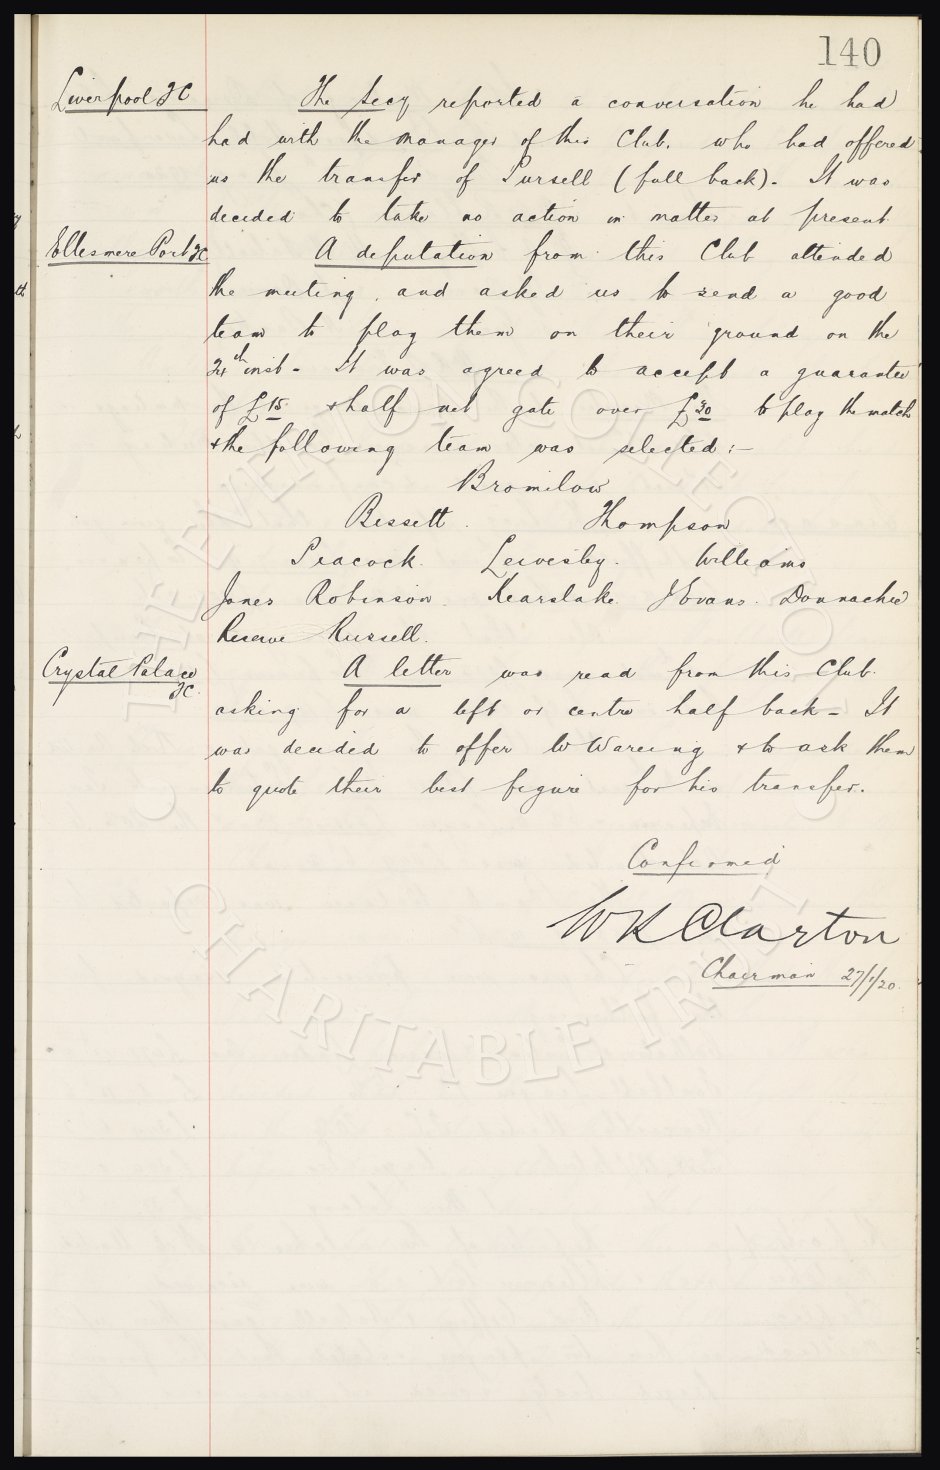 140
Liverpool FC
The Secy reported a conversation he had
had with the manager of this Club, who had offered
us the transfer of Pursell (full back). It was
decided to take no action in matter at present
Ellesmere Port FC
A deputation from this Club attended
the meeting, and asked us to send a good
team to play them on their ground on the
24th inst - It was agreed to accept a guarantee
of £15 & half net gate over £30 to play the match
& the following team was selected :-
Bromilow
Bessett. Thompson
Peacock. Leivesley. Williams
Jones Robinson. Kearslake. J Evans. Donnachie
Reserve Russell.
Crystal Palace
FC.
A letter was read from this Club.
asking for a left or centre half back - It
was decided to offer W Wareing & to ask them
to quote their best figure for his transfer.
Confirmed
W R Clayton
Chairman 27/1/20.
THE EVERTON COLLECTION
CHARITABLE TRUST